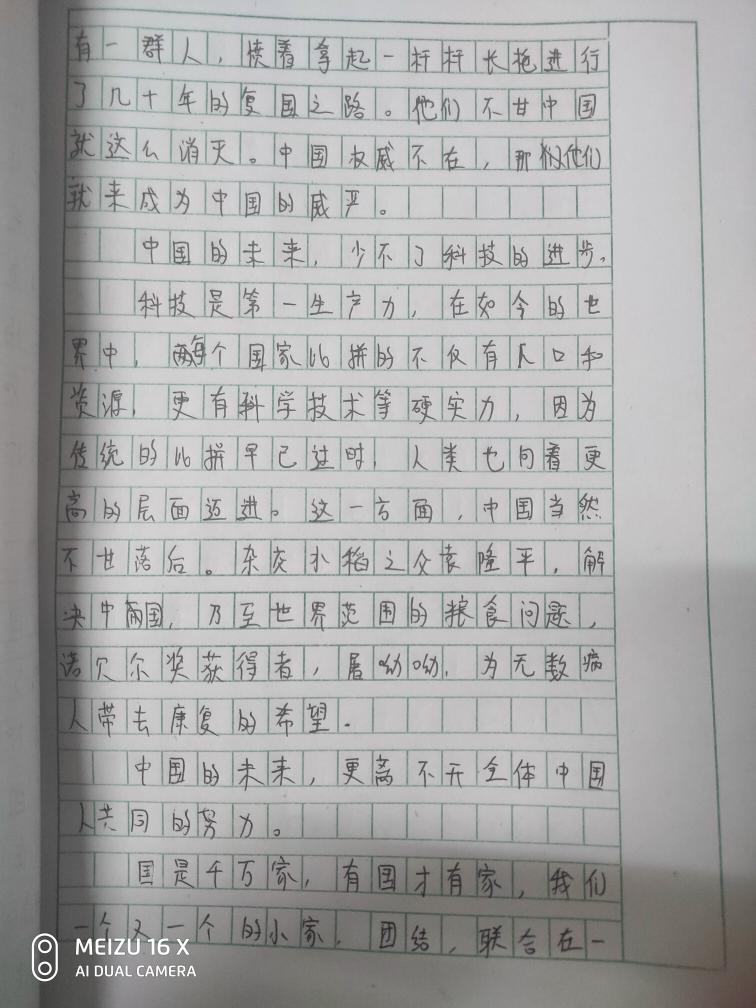 有一群人，愤着拿起一杆杆长抢进行
了几十年的复国之路。他们不甘中国
就这么消灭。中国权威不在，那他们
就来成为中国的威严。
中国的未来，少不了科技的进步。
科技是第一生产力，在如今的世
界中，每个国家比拼的不仅有人口和
资源，更有科学技术等硬实力，因为
传统的比拼早已过时，人类也向着更
高的层面迈进。这一方面，中国当然
不甘落后。杂交水稻之父袁隆平，解
决中国，乃至世界范围的粮食问题，
诺贝尔奖获得者，屠呦呦，为无数病
人带去康复的希望。
中国的未来，更离不开全体中国
人共同的努力。
国是千万家，有国才有家，我们
一个又一个的小家，团结，联合在一
MEIZU 16 X
AI DUAL CAMERA